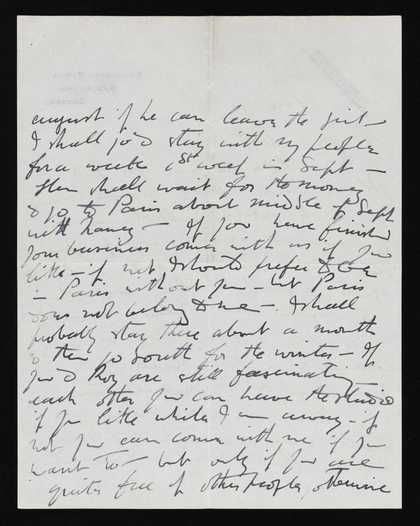 august if he can leave the girl –
I shall go & stay with my people
for a week 1st week in Sept –
then shall wait for the money
& go to Paris about middle of Sept
with haney – If you have finished
your business come with us if you
like – if not I should prefer to be
– Paris without you – but Paris
does not belong to me – I shall
probably stay there about a month
& then go south for the winter – If
you & Roy are still fascinating
each other you can have the studio
if you like while I am away – if
not you can come with me if you
want to – but only if you are
quite free of other people, otherwise